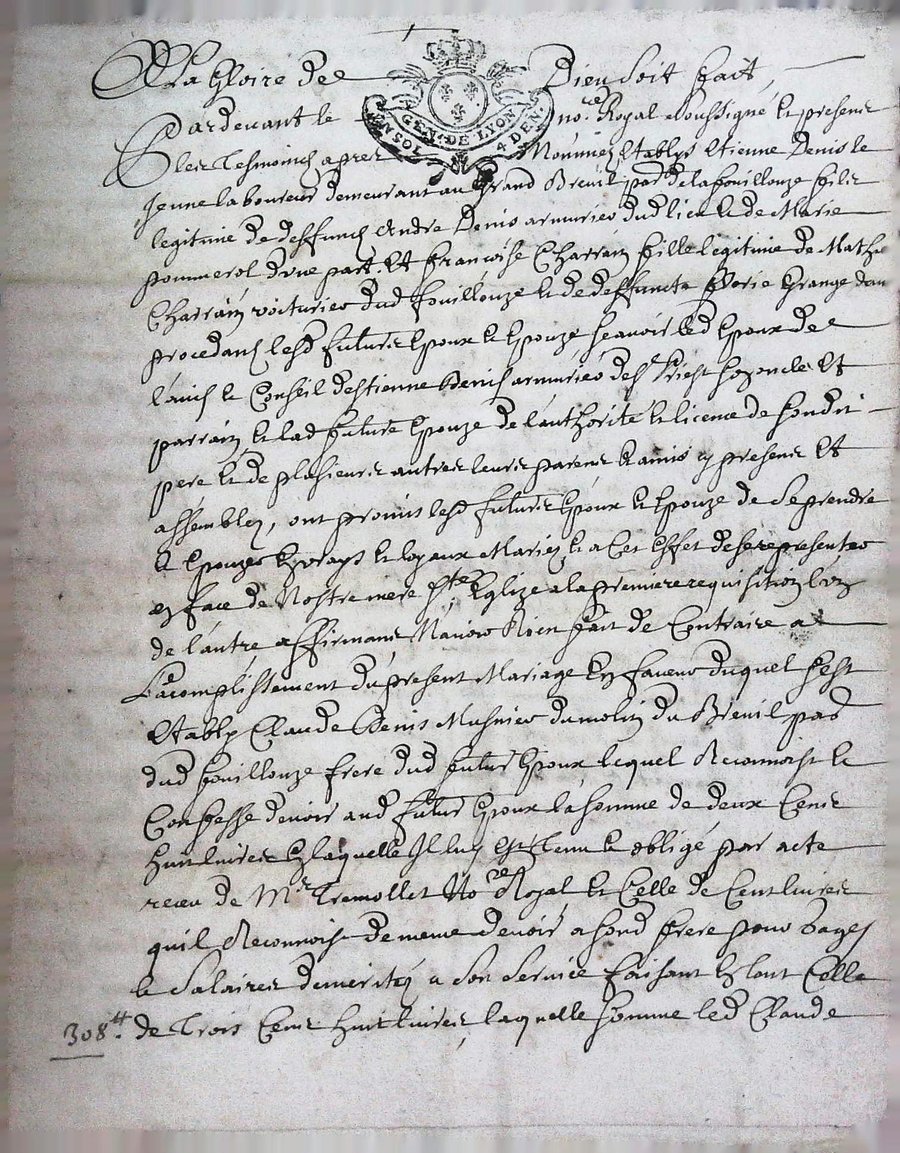 A La Gloire de Dieu Soit fait,
GEN. DE LYON
UN SOL 4 DEN.
Pardevant le no.re Royal Soussigné et presens
les Tesmoins apres Nommez Etablys Etienne Denis le
Jeune laboureur demeurant au Grand Breuil par.se de la fouillouze fils
legitime de deffunct Andre Denis armurier dud lieu et de Marie
pommerol d'une part. Et francoise Charrain fille legitime de Mathieu
Charrain voiturier dud fouillouze et de deffuncte Grange d'au
procedans lesd futurs Epoux et Epouze scavoir led Epoux de
l'avis et Conseil d'Estienne Denis armurier de St Priest son oncle Et
parrain et lad future Epouze de l'authorité et licence de sondit
pere et de plusieurs autres leurs parens et amis y presens Et
assemblez, ont promis lesd futurs Epoux et Epouze de Se prendre
et Epouzer En vrays et loyaux Mariez et a Cet Effet de se representer
en face de Nostre mere Ste Eglize a la premiere requisition l'un
de l'autre affirmans N'avoir Rien fait de Contraire a
L'acomplissement du present Mariage En faveur duquel s'est
Etably Claude Denis Musnier du molin du Breuil par.se
dud fouillouze frere dud futur Epoux lequel Reconnoist et
Confesse devoir aud futur Epoux la somme de deux Cens
huit livres En laquelle Il luy est tenu et obligé par acte
receu de Mr Tremollet No.re Royal Et Celle de Cent livres
quil Reconnoist de meme devoir a sond frere pour Gages
et Salaires demeritez a Son Service faisant En tout Celle
308 tt. de Trois Cens huit livres, laquelle somme led Claude